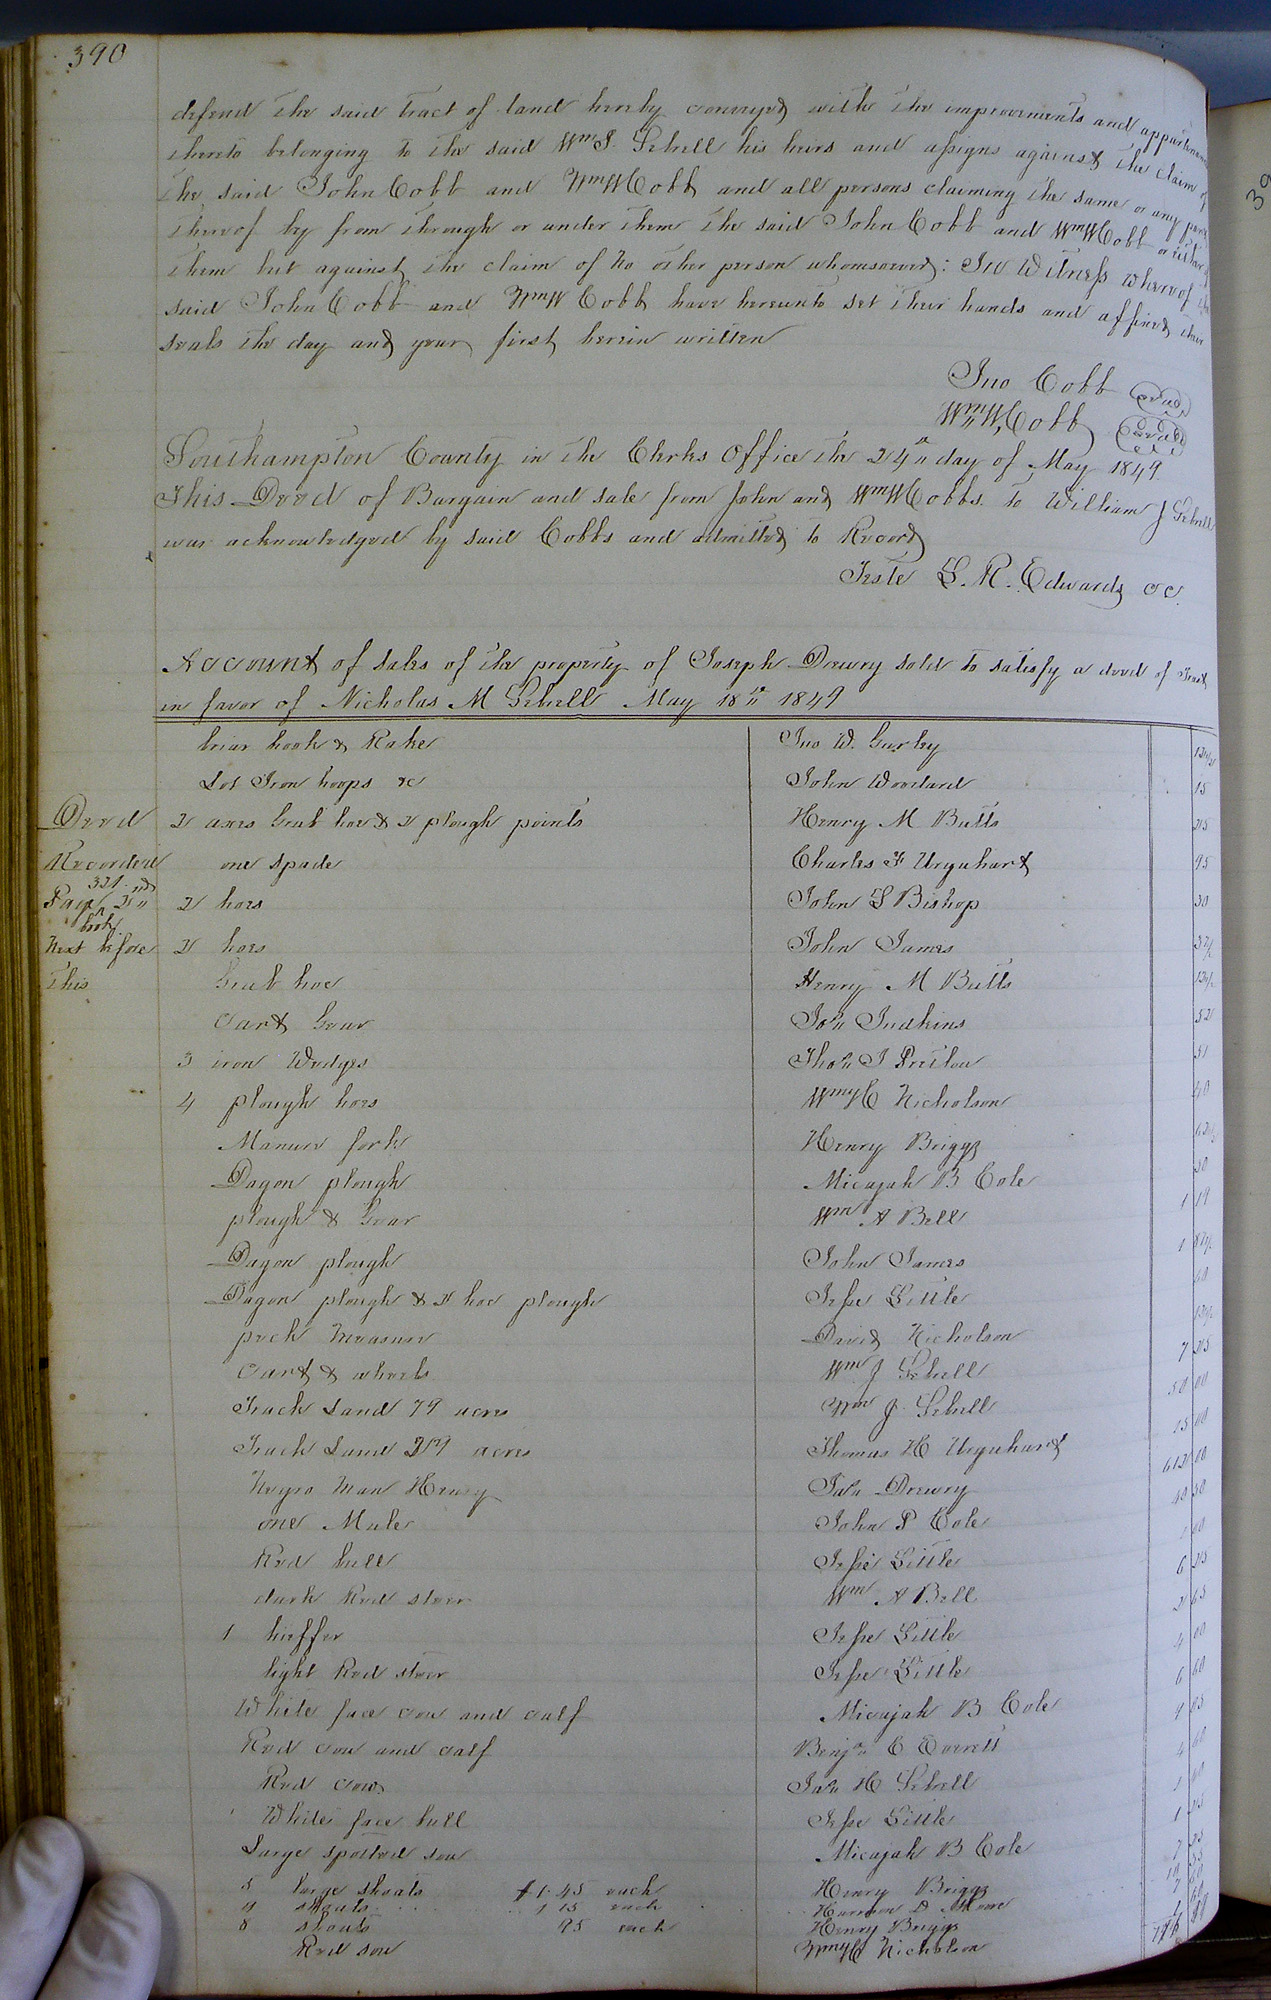 390
defend the said tract of land hereby conveyed with the improvements and appurtenances
thereto belonging to the said Wm J. Sebrell his heirs and assigns against the claim of
the said John Cobb and Wm W Cobb and all persons claiming the same or any part
thereof by from through or under them the said John Cobb and Wm W Cobb or either of
them but against the claim of no other person whomsoever: In Witness whereof the
said John Cobb and Wm W Cobb have hereunto set their hands and affixed their
seals the day and year first herein written
Jno Cobb Seal
Wm W, Cobb Seal
Southampton County in the Clerks Office the 24th day of May 1849.
This Deed of Bargain and sale from John and Wm W Cobbs. to William J Sebrell
was acknowledged by said Cobbs and admitted to Record
Teste L. R. Edwards cc.
Account of sales of the property of Joseph Drewry sold to satisfy a deed of Trust
in favor of Nicholas M Sebrell May 18th 1849
briar hook & Rake Jno W. Gurley 12 1/2
Lot Iron hoops &c John Woodard 15
Deed 2 axes Grub hoe & 2 plough points Henry M Butts 25
Recorded one spade Charles F Urquhart 95
321
Page 2nd 2 hoes John S Bishop 30
book
Next before 2 hoes John James 37 1/2
This Grub hoe Henry M Butts 12 1/2
Cart Gear Jas Judkins 52
3 iron Wedges Thos J Pretlow 51
4 plough hoes Wm C Nicholson 40
Manure fork Henry Briggs 62 1/2
Dagon plough Micajah B Cole 50
plough & Gear Wm A Bell 1 19
Dagon plough John James 1 81 1/2
Dagon plough & 2 hoe plough Jesse Little 60
peck Measure David Nicholson 12 1/2
Cart & wheels Wm J Sebrell 7 25
Track Land 79 acres Wm J. Sebrell 50 00
Track Land 219 acres Thomas H Urquhart 00
Negro Man Henry Jas Drewry 612 00
one Mule John P Cole 40 50
Red bull Jesse Little 00
dark Red steer Wm A Bell 6 25
1 heiffer Jesse Little 2 65
light Red steer Jesse Little 4 00
White face cow and calf Micajah B Cole 6 60
Red cow and calf Benja C Everett 9 05
Red cow Jas H Sebrell 4 60
White face bull Jesse Little
Large spotted sow Micajah B Cole 1 25
5 large shoats $1.45 each Henry Briggs 7 25
9 shoats 1 15 each Harrison D Moore 10 35
8 shoats 95 each Henry Briggs 7 60
Red sow Wm C Nicholson